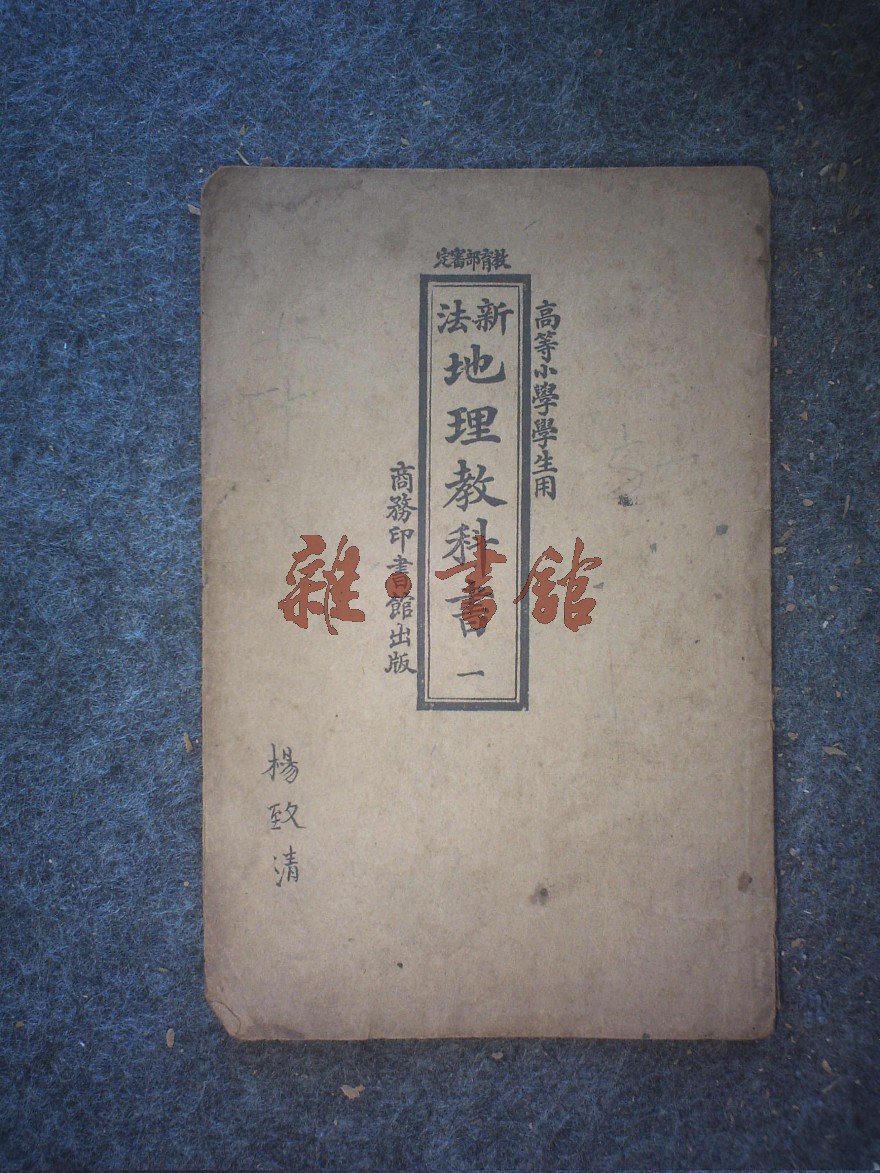 教育部審定
高等小學學生用
新法
地理教科書 一
商務印書館出版
楊致清
雜·書館